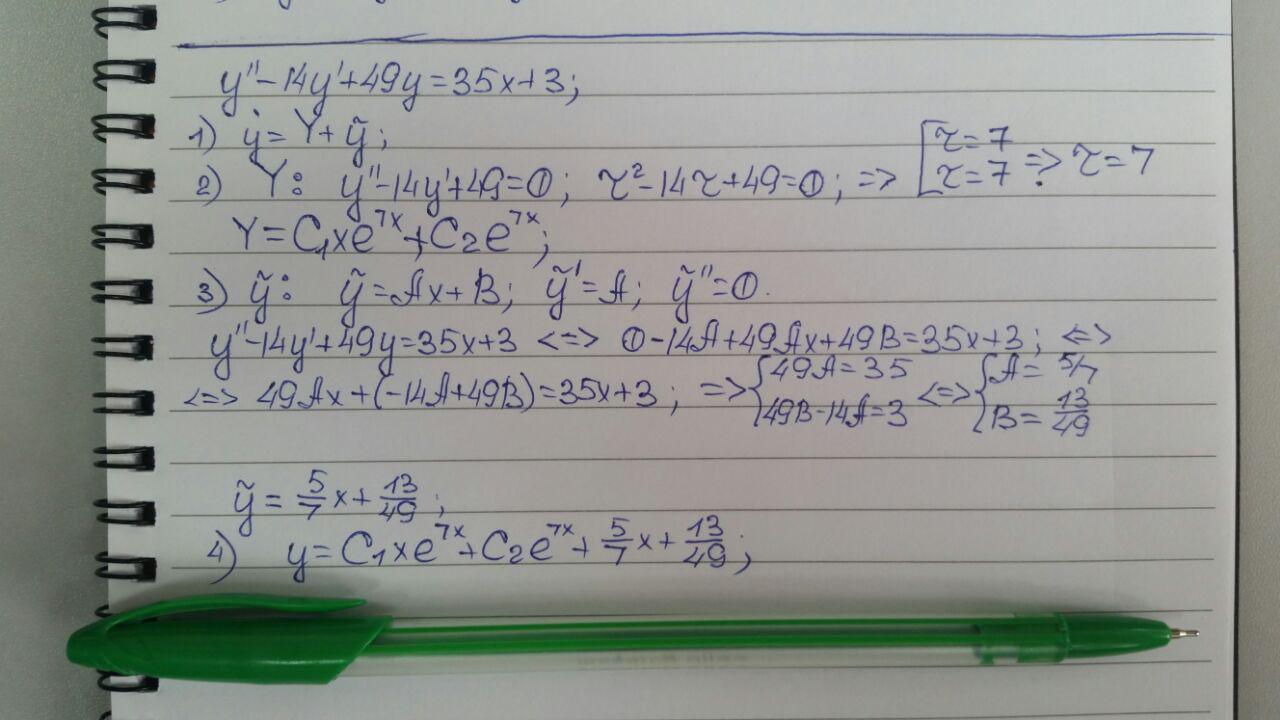 y''-14y'+49y=35x+3;
1) y=Y+ỹ;
2) Y: y''-14y'+49=0; r²-14r+49=0; => [r=7 r=7 => r=7
Y=C₁xe^7x+C₂e^7x;
3) ỹ: ỹ=Ax+B; ỹ'=A; ỹ''=0.
y''-14y'+49y=35x+3 <=> 0-14A+49Ax+49B=35x+3; <=>
<=> 49Ax+(-14A+49B)=35x+3; => {49A=35 49B-14A=3 <=> {A=5/7 B=13/49
ỹ=5/7x+13/49;
4) y=C₁xe^7x+C₂e^7x+5/7x+13/49;